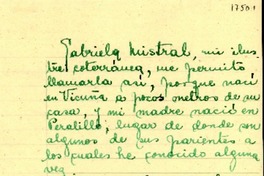 17501
Gabriela Mistral, mi ilus
tre coterránea, me permito
llamarla así, porque nací
en Vicuña a pocos metros de su
casa, y mi madre nació en
Peralillo, lugar de donde son
algunos de sus parientes a
los cuales he conocido alguna
vez